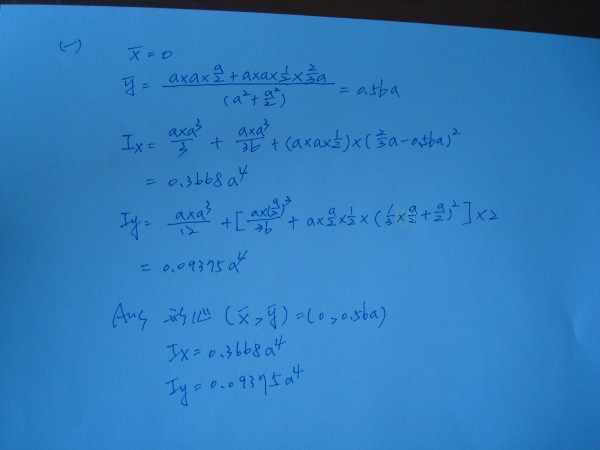 (一)
x̄ = 0
ȳ = (a×a×a/2 + a×a×1/2×2/3a)/(a²+a²/2) = 0.56a
Ix = a×a³/3 + a×a³/36 + (a×a×1/2)×(2/3a-0.56a)²
= 0.3668a⁴
Iy = a×a³/12 + [a×(a/2)³/36 + a×a/2×1/2×(1/3×a/2+a/2)²]×2
= 0.09375a⁴
Ans 形心 (x̄,ȳ)=(0,0.56a)
Ix=0.3668a⁴
Iy=0.09375a⁴